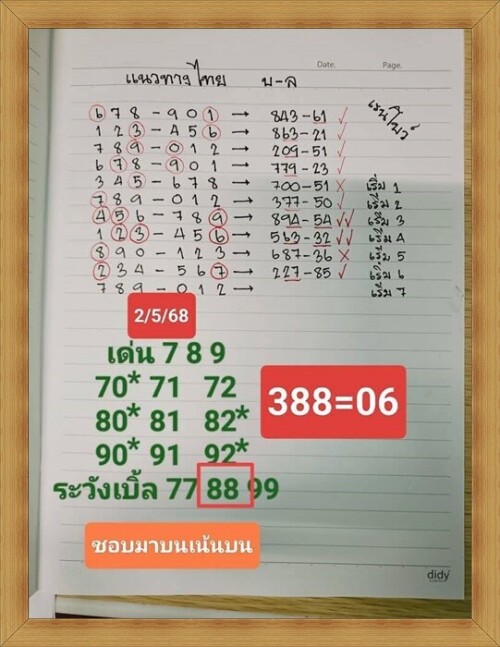 Date. Page.
แนวทางไทย บ-ล
678-901 → 843-61 ✓
123-456 → 863-21 ✓
789-012 → 209-51 ✓
678-901 → 779-23 ✓
345-678 → 700-51 × เริ่ม 1
789-012 → 377-50 ✓ เริ่ม 2
456-789 → 894-54 ✓✓ เริ่ม 3
123-456 → 563-32 ✓✓ เริ่ม 4
890-123 → 687-36 × เริ่ม 5
234-567 → 227-85 ✓ เริ่ม 6
789-012 → เริ่ม 7
2/5/68
เด่น 7 8 9
70* 71 72
80* 81 82*
90* 91 92*
388=06
ระวังเบิ้ล 77 88 99
ชอบมาบนเน้นบน
didy